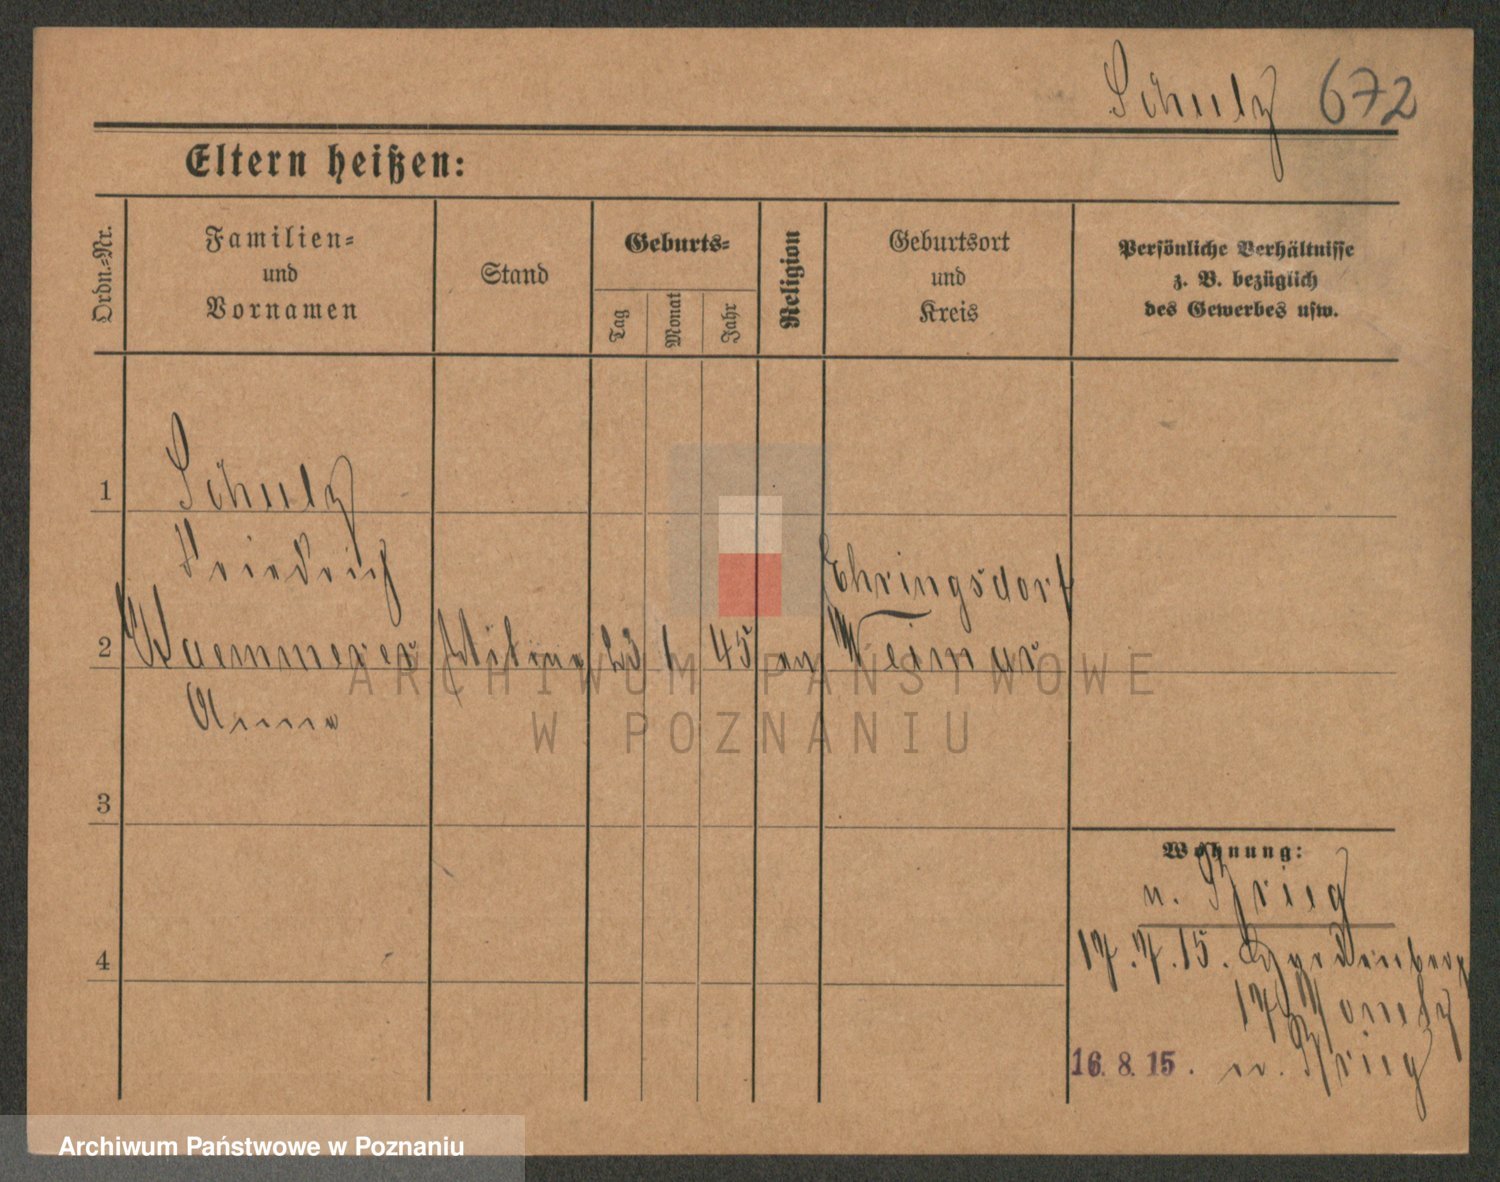 Schulz 672
Eltern heißen:
Ordn.-Nr.
Familien-
und
Vornamen
Stand
Geburts-
Tag
Monat
Jahr
Religion
Geburtsort
und
Kreis
Persönliche Verhältnisse
z. B. bezüglich
des Gewerbes usw.
1
Schulz
Friedrich
2
Kaemmerer
Anna
23 1 45 ev
Ehringsdorf
Weimar
3
4
Wohnung:
n. Brieg
17.7.15.
16.8.15. n. Brieg
ARCHIWUM PAŃSTWOWE
W POZNANIU
Archiwum Państwowe w Poznaniu